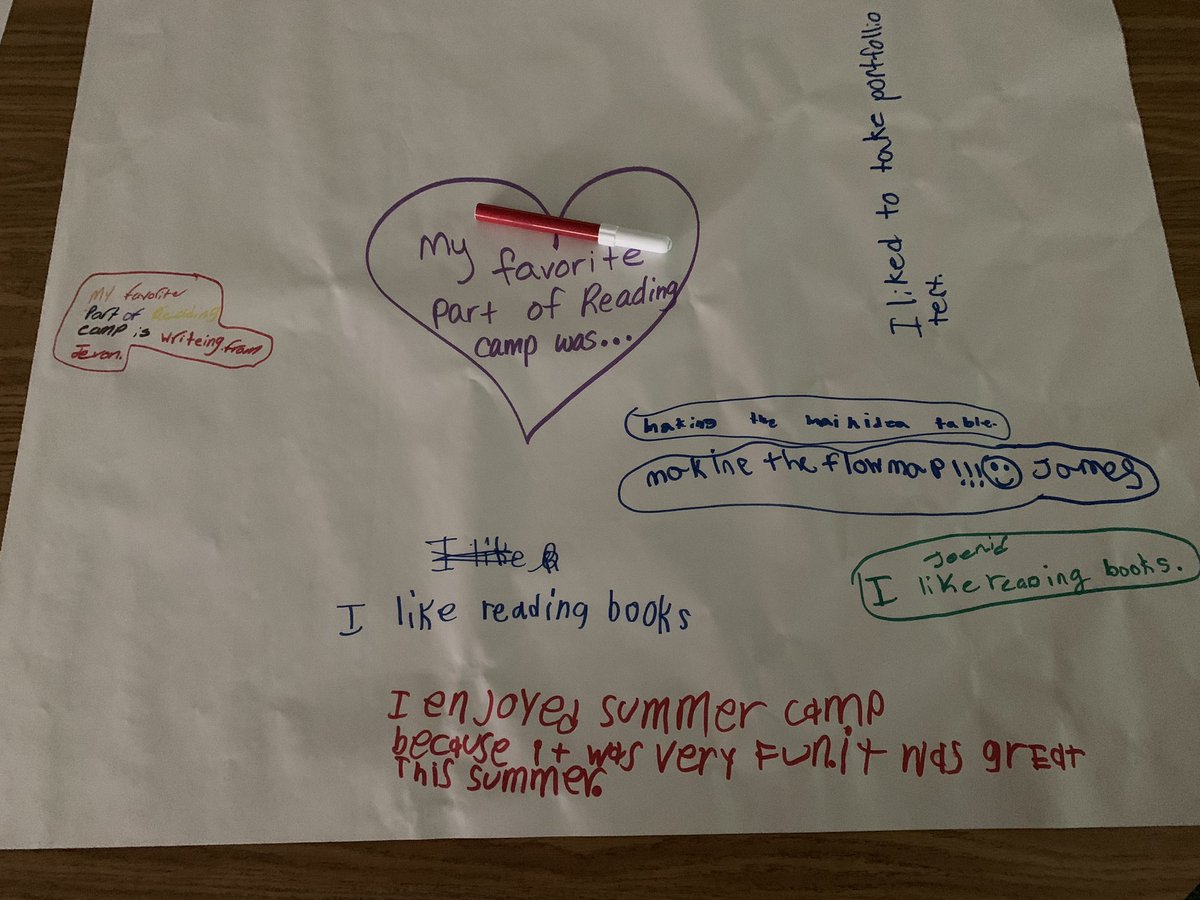 My favorite
Part of Reading
camp was...
I liked to take portfollio
tert.
My favorite
Part of Reading
camp is writeing.from
Jevon.
making the mainidea table.
making the flowmap!!! James
I like
I like reading books
Joenid
I like reading books.
I enjoyed summer camp
because it was very FUN.it was grEat
This summer.